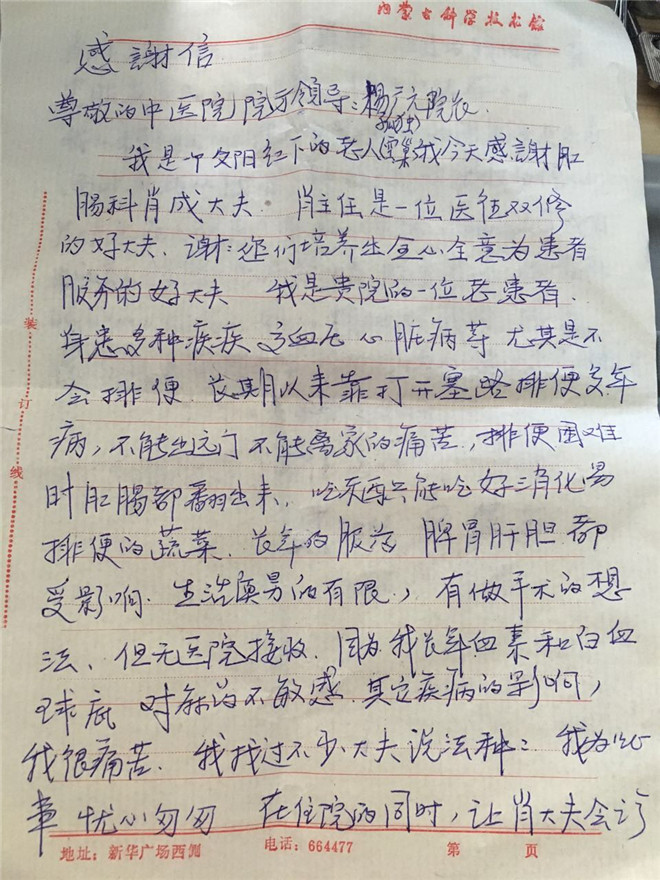 内蒙古科学技术馆
感謝信
尊敬的中医院院方领导:杨广院长.
孤独
我是一个夕阳红下的老人(空巢)我今天感謝肛
肠科肖成大夫. 肖主任是一位医德双修
的好大夫、謝:您们培养出全心全意为患者
服务的好大夫 我是贵院的一位老患者.
身患多种疾疾 高血压 心脏病等 尤其是不
会排便. 长期以来靠打开塞路排便多年
病,不能出远门 不能离家的痛苦,排便困难
时肛腸都翻出来. 吃东西只能吃好消化易
排便的蔬菜. 长年的服药 脾胃肝胆都
受影响. 有限, 有做手术的想
法、但无医院接收. 因为我长年血素和白血
球底 对麻药不敏感. 其它疾病的影响,
我很痛苦. 我找过不少大夫说法种:. 我为此
事忧心匆匆 在住院的同时,让肖大夫会诊
装
订
线
地址:新华广场西侧 电话:664477 第 页